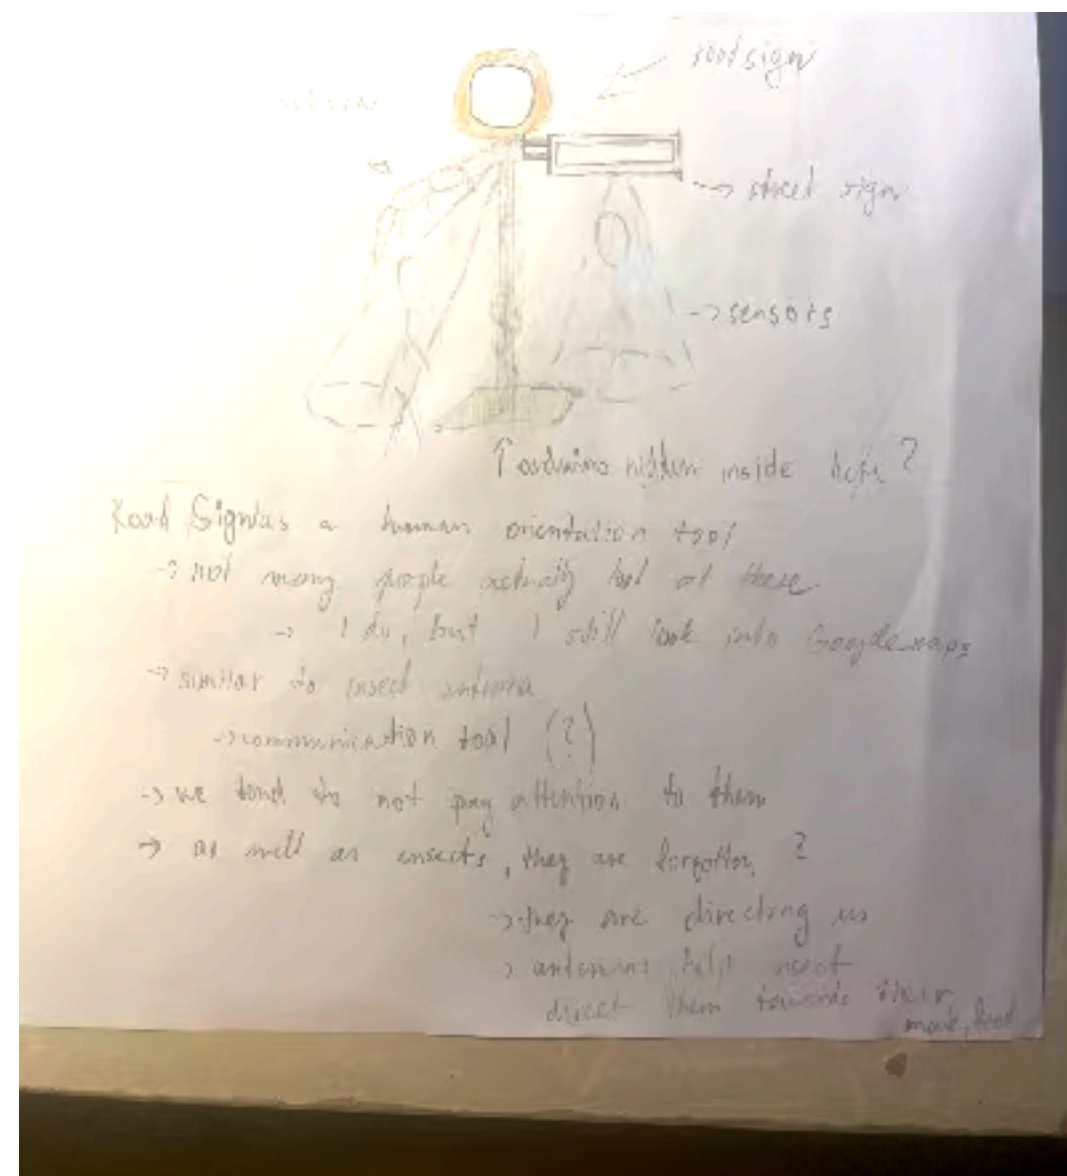 road sign
-> street sign
-> sensors
↑ arduino hidden inside here?
Road Signs as a human orientation tool
-> not many people actually look at these
-> I do, but I still look into Google maps
-> similar to insect antenna
-> communication tool (?)
-> we tend to not pay attention to them
-> as well as insects, they are forgotten ?
-> they are directing us
-> antennas help insect
direct them towards their
food